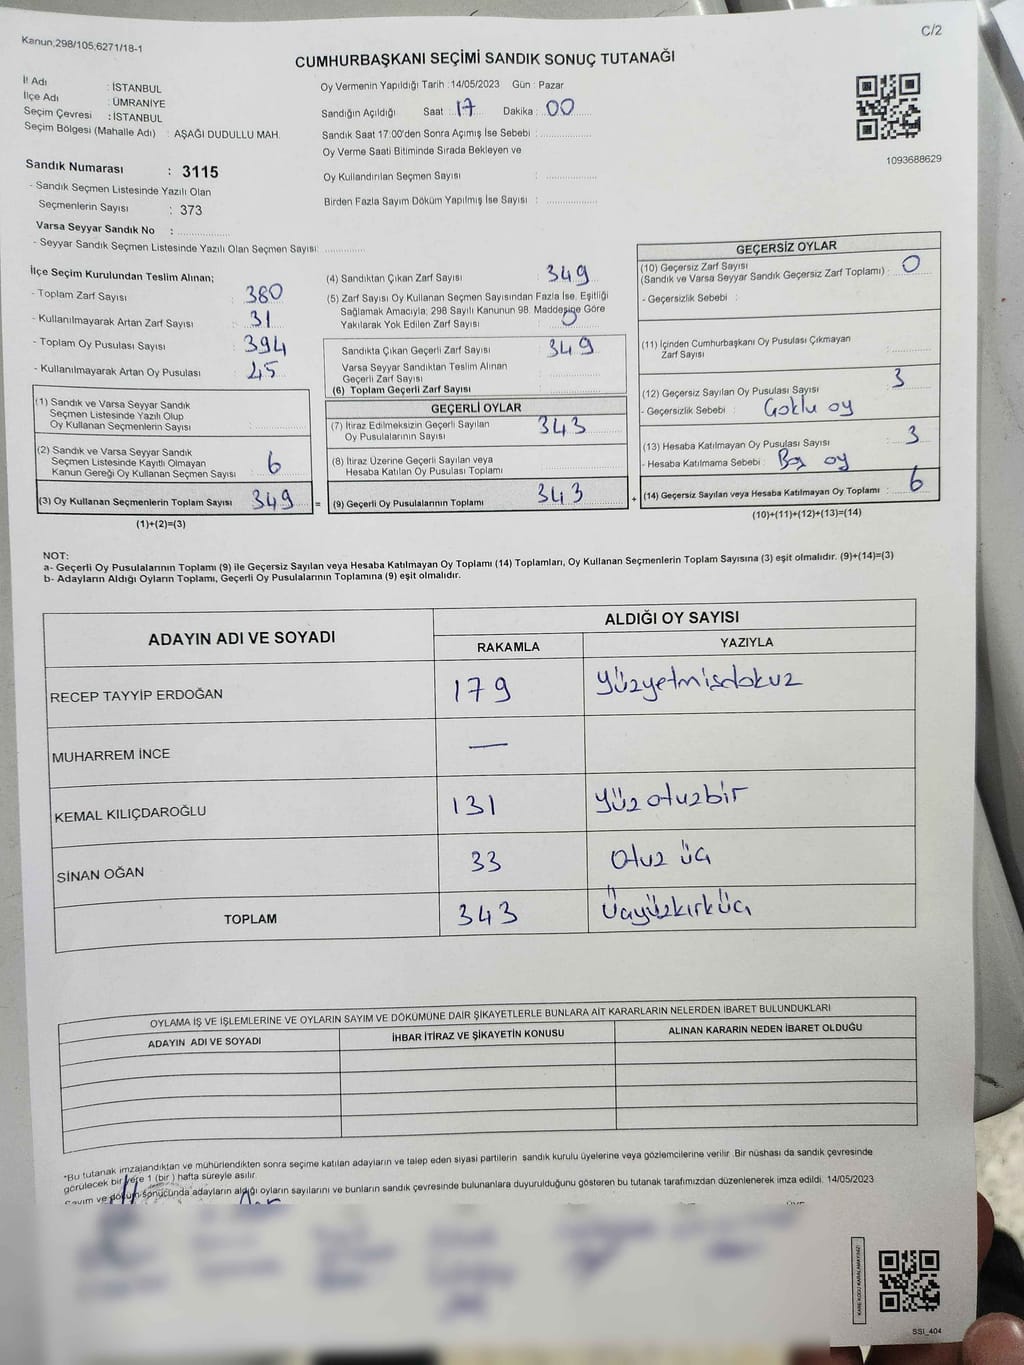 Kanun,298/105,6271/18-1
C/2
CUMHURBAŞKANI SEÇİMİ SANDIK SONUÇ TUTANAĞI
İl Adı : İSTANBUL
İlçe Adı : ÜMRANİYE
Seçim Çevresi : İSTANBUL
Seçim Bölgesi (Mahalle Adı) : AŞAĞI DUDULLU MAH.
Sandık Numarası : 3115
- Sandık Seçmen Listesinde Yazılı Olan
Seçmenlerin Sayısı : 373
Varsa Seyyar Sandık No :
- Seyyar Sandık Seçmen Listesinde Yazılı Olan Seçmen Sayısı:
Oy Vermenin Yapıldığı Tarih : 14/05/2023 Gün : Pazar
Sandığın Açıldığı Saat : 17 Dakika : 00
Sandık Saat 17:00'den Sonra Açımış İse Sebebi :
Oy Verme Saati Bitiminde Sırada Bekleyen ve
Oy Kullandırılan Seçmen Sayısı :
Birden Fazla Sayım Döküm Yapılmış İse Sayısı :
1093688629
İlçe Seçim Kurulundan Teslim Alınan;
- Toplam Zarf Sayısı : 380
- Kullanılmayarak Artan Zarf Sayısı : 31
- Toplam Oy Pusulası Sayısı : 394
- Kullanılmayarak Artan Oy Pusulası : 45
(1) Sandık ve Varsa Seyyar Sandık
Seçmen Listesinde Yazılı Olup
Oy Kullanan Seçmenlerin Sayısı :
(2) Sandık ve Varsa Seyyar Sandık
Seçmen Listesinde Kayıtlı Olmayan
Kanun Gereği Oy Kullanan Seçmen Sayısı : 6
(3) Oy Kullanan Seçmenlerin Toplam Sayısı : 349 =
(1)+(2)=(3)
(4) Sandıktan Çıkan Zarf Sayısı : 349
(5) Zarf Sayısı Oy Kullanan Seçmen Sayısından Fazla İse, Eşitliği
Sağlamak Amacıyla; 298 Sayılı Kanunun 98. Maddesine Göre
Yakılarak Yok Edilen Zarf Sayısı : 0
Sandıkta Çıkan Geçerli Zarf Sayısı : 349
Varsa Seyyar Sandıktan Teslim Alınan
Geçerli Zarf Sayısı :
(6) Toplam Geçerli Zarf Sayısı :
GEÇERLİ OYLAR
(7) İtiraz Edilmeksizin Geçerli Sayılan
Oy Pusulalarının Sayısı : 343
(8) İtiraz Üzerine Geçerli Sayılan veya
Hesaba Katılan Oy Pusulası Toplamı :
(9) Geçerli Oy Pusulalarının Toplamı : 343 +
GEÇERSİZ OYLAR
(10) Geçersiz Zarf Sayısı
(Sandık ve Varsa Seyyar Sandık Geçersiz Zarf Toplamı) : 0
- Geçersizlik Sebebi :
(11) İçinden Cumhurbaşkanı Oy Pusulası Çıkmayan
Zarf Sayısı :
(12) Geçersiz Sayılan Oy Pusulası Sayısı : 3
- Geçersizlik Sebebi : Çoklu oy
(13) Hesaba Katılmayan Oy Pusulası Sayısı : 3
- Hesaba Katılmama Sebebi : Boş oy
(14) Geçersiz Sayılan veya Hesaba Katılmayan Oy Toplamı : 6
(10)+(11)+(12)+(13)=(14)
NOT:
a- Geçerli Oy Pusulalarının Toplamı (9) ile Geçersiz Sayılan veya Hesaba Katılmayan Oy Toplamı (14) Toplamları, Oy Kullanan Seçmenlerin Toplam Sayısına (3) eşit olmalıdır. (9)+(14)=(3)
b- Adayların Aldığı Oyların Toplamı, Geçerli Oy Pusulalarının Toplamına (9) eşit olmalıdır.
ADAYIN ADI VE SOYADI
ALDIĞI OY SAYISI
RAKAMLA YAZIYLA
RECEP TAYYİP ERDOĞAN 179 Yüzyetmişdokuz
MUHARREM İNCE —
KEMAL KILIÇDAROĞLU 131 Yüz otuzbir
SİNAN OĞAN 33 Otuz üç
TOPLAM 343 Üçyüzkırküç
OYLAMA İŞ VE İŞLEMLERİNE VE OYLARIN SAYIM VE DÖKÜMÜNE DAİR ŞİKAYETLERLE BUNLARA AİT KARARLARIN NELERDEN İBARET BULUNDUKLARI
ADAYIN ADI VE SOYADI İHBAR İTİRAZ VE ŞİKAYETİN KONUSU ALINAN KARARIN NEDEN İBARET OLDUĞU
*Bu tutanak imzalandıktan ve mühürlendikten sonra seçime katılan adayların ve talep eden siyasi partilerin sandık kurulu üyelerine veya gözlemcilerine verilir. Bir nüshası da sandık çevresinde
görülecek bir yere 1 (bir) hafta süreyle asılır.
Sayım ve döküm sonucunda adayların aldığı oyların sayılarını ve bunların sandık çevresinde bulunanlara duyurulduğunu gösteren bu tutanak tarafımızdan düzenlenerek imza edildi. 14/05/2023
KARE KODU KARALAMAYINIZ!
SSI_404